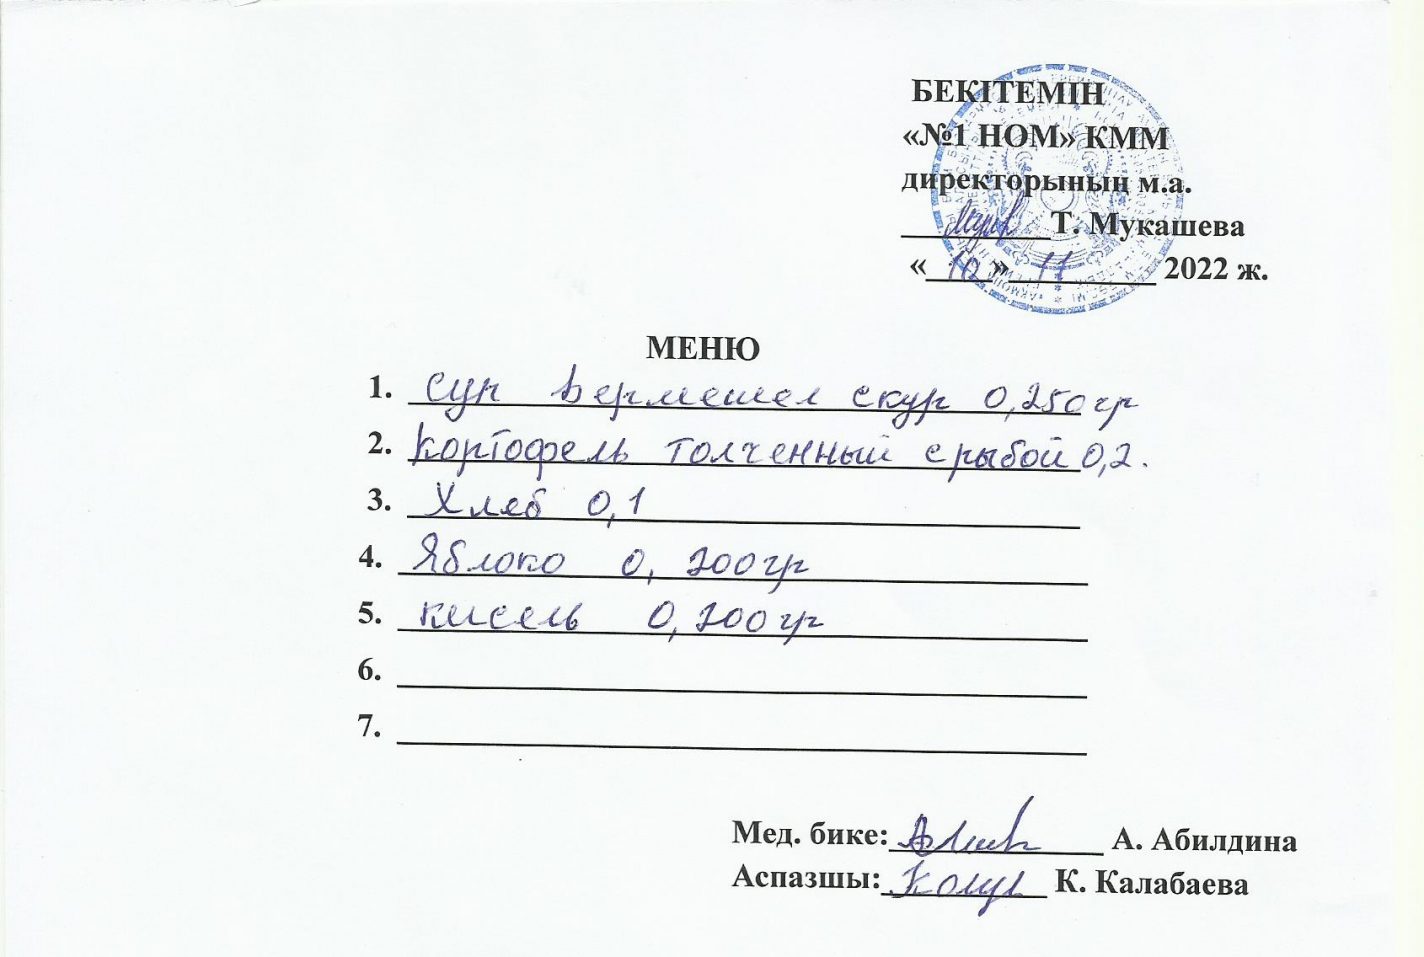 БЕКІТЕМІН
«№1 НОМ» КММ
директорының м.а.
Т. Мукашева
«10» 11 2022 ж.
МЕНЮ
1. суп вермешел скур 0,250гр
2. картофель толченный с рыбой 0,2.
3. Хлеб 0,1
4. Яблоко 0, 200гр
5. кисель 0, 200гр
6.
7.
Мед. бике: А. Абилдина
Аспазшы: К. Калабаева